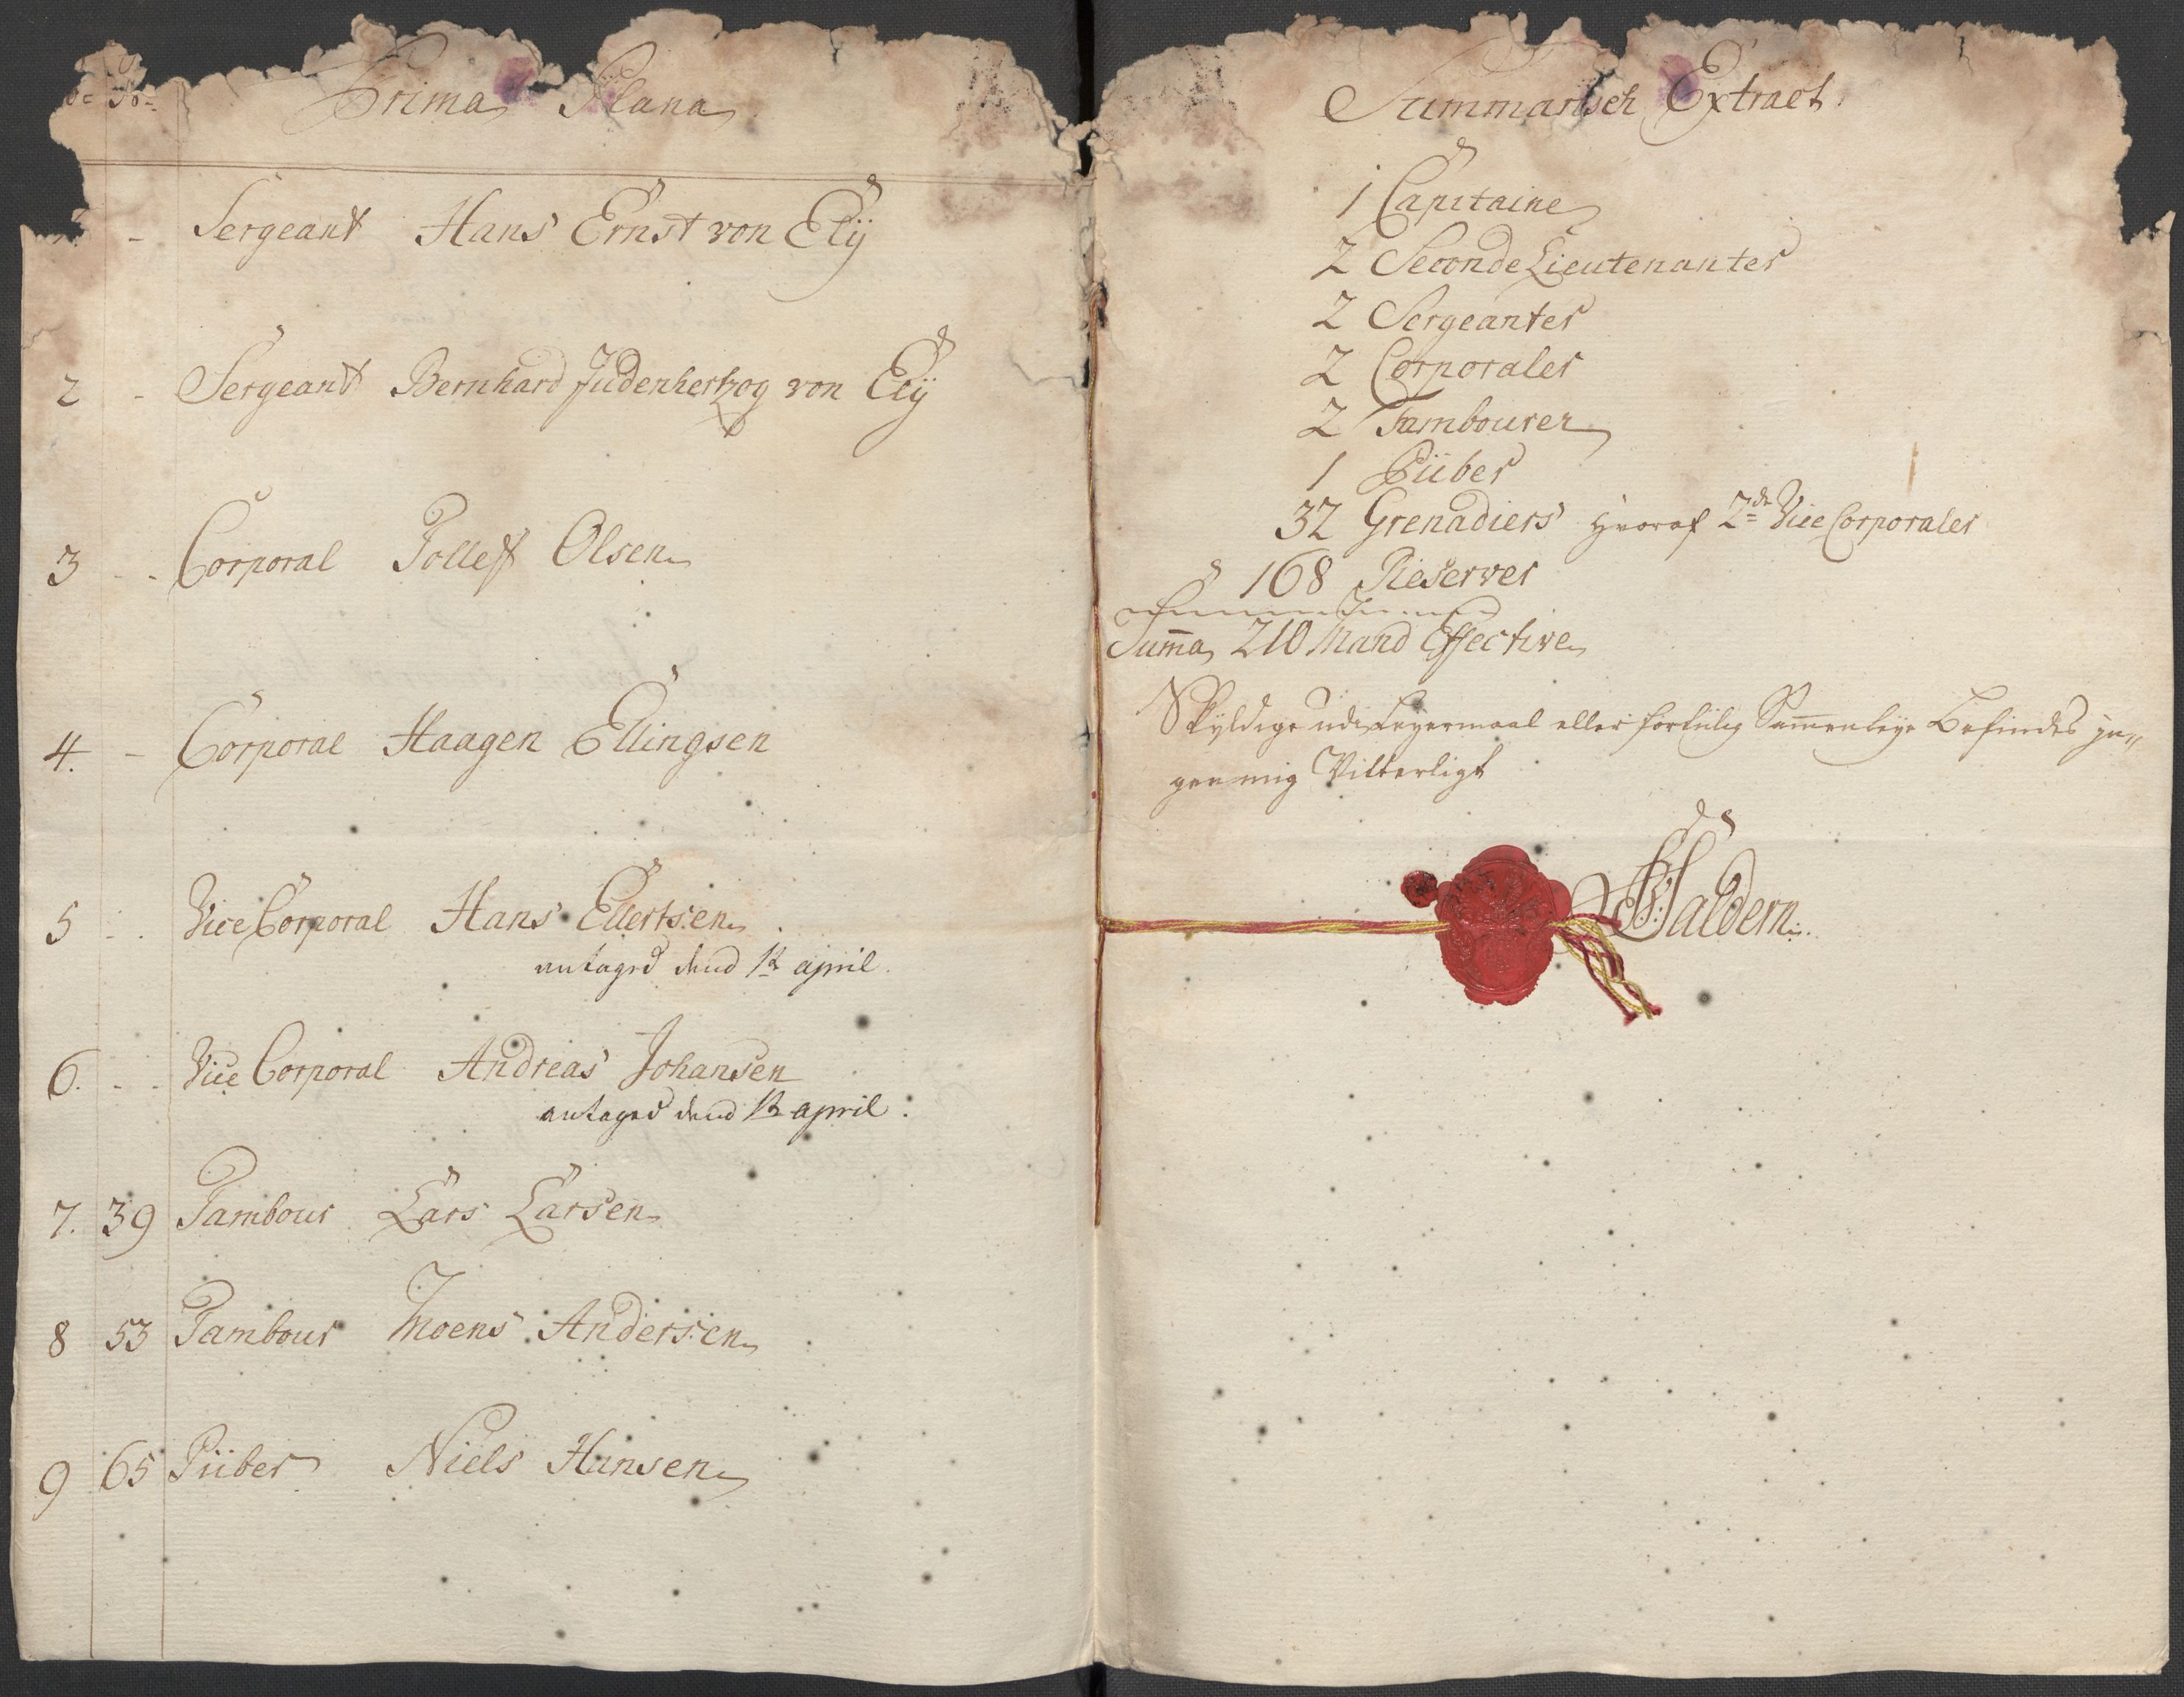 Prima Plana
- Sergeant Hans Ernst von Elÿ
2 - Sergeant Bernhard Judenhertzog von Elÿ
3 - - Corporal Tollef Olsen
4. - Corporal Haagen Ellingsen
5 - . Vice Corporal Hans Ellertsen
antaged dend 1t april.
6. - - Vice Corporal Andreas Johansen
antaged dend 1t april.
7. 39 Tambour Lars Larsen
8 53 Tambour Moens Andersen
9 65 Piiber Niels Hansen
Summarisch Extract.
1 Capitaine
2 Seconde Lieutenanter
2 Sergeanter
2 Corporaler
2 Tambourer
1 Piiber
32 Grenadiers hvoraf 2de Vice Corporaler
168 Reserver
Suma 210 Mand Effective
Skyldige udi Leyermaal eller forfulig Samenleye Befindes in„
gen mig Vitterligt
Saldern